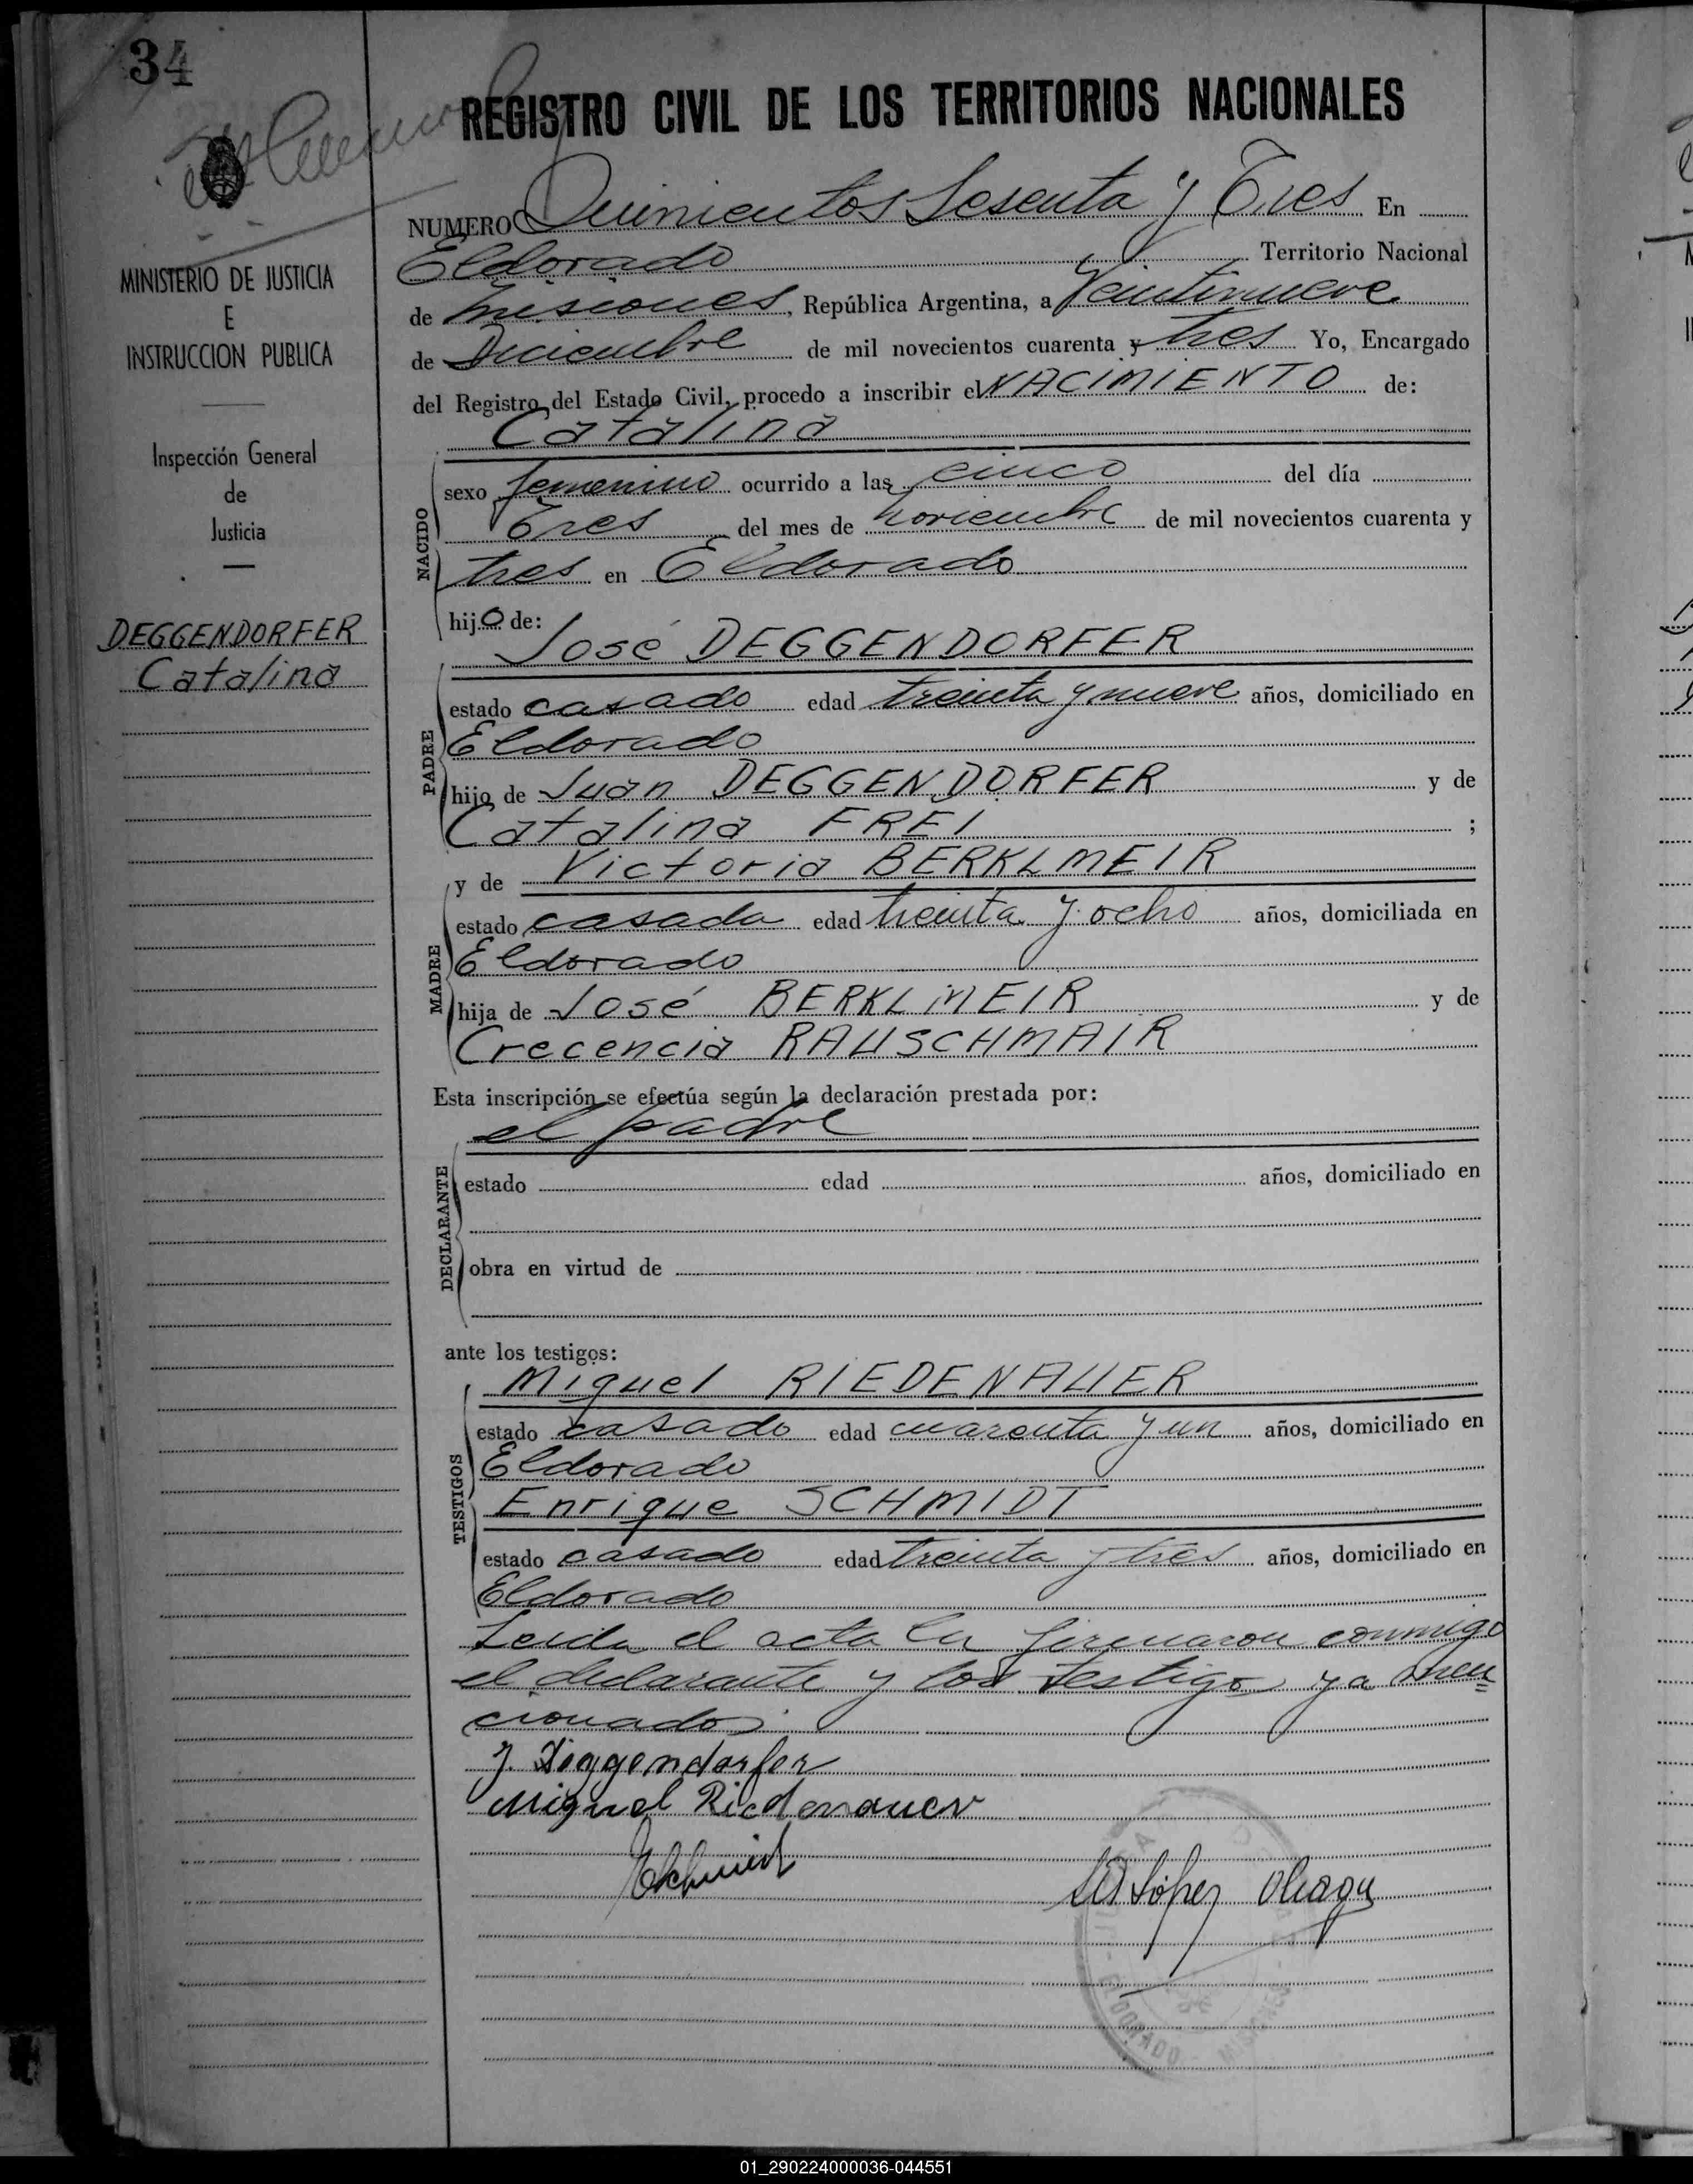 34
REGISTRO CIVIL DE LOS TERRITORIOS NACIONALES
MINISTERIO DE JUSTICIA
E
INSTRUCCION PUBLICA
Inspección General
de
Justicia
DEGGENDORFER
Catalina
NUMERO Quinientos Sesenta y Tres En
Eldorado Territorio Nacional
de Misiones, República Argentina, a Veintinueve
de Diciembre de mil novecientos cuarenta y tres Yo, Encargado
del Registro del Estado Civil, procedo a inscribir el NACIMIENTO de:
Catalina
NACIDO
sexo femenino ocurrido a las cinco del día
Tres del mes de noviembre de mil novecientos cuarenta y
tres en Eldorado
hijo de:
José DEGGENDORFER
PADRE
estado casado edad treinta y nueve años, domiciliado en
Eldorado
hijo de Juan DEGGENDORFER y de
Catalina FREI ;
y de Victoria BERKLMEIR
MADRE
estado casada edad treinta y ocho años, domiciliada en
Eldorado
hija de José BERKLMEIR y de
Crecencia RAUSCHMAIR
Esta inscripción se efectúa según la declaración prestada por:
el padre
DECLARANTE
estado edad años, domiciliado en
obra en virtud de
ante los testigos:
Miguel RIEDENAUER
TESTIGOS
estado casado edad cuarenta y un años, domiciliado en
Eldorado
Enrique SCHMIDT
estado casado edad treinta y tres años, domiciliado en
Eldorado
Leida el acta la firmaron conmigo
el declarante y los testigos ya men
cionados.
J. Deggendorfer
Miguel Riedenauer
ESchmidt
López
ELDORADO
01_290224000036-044551